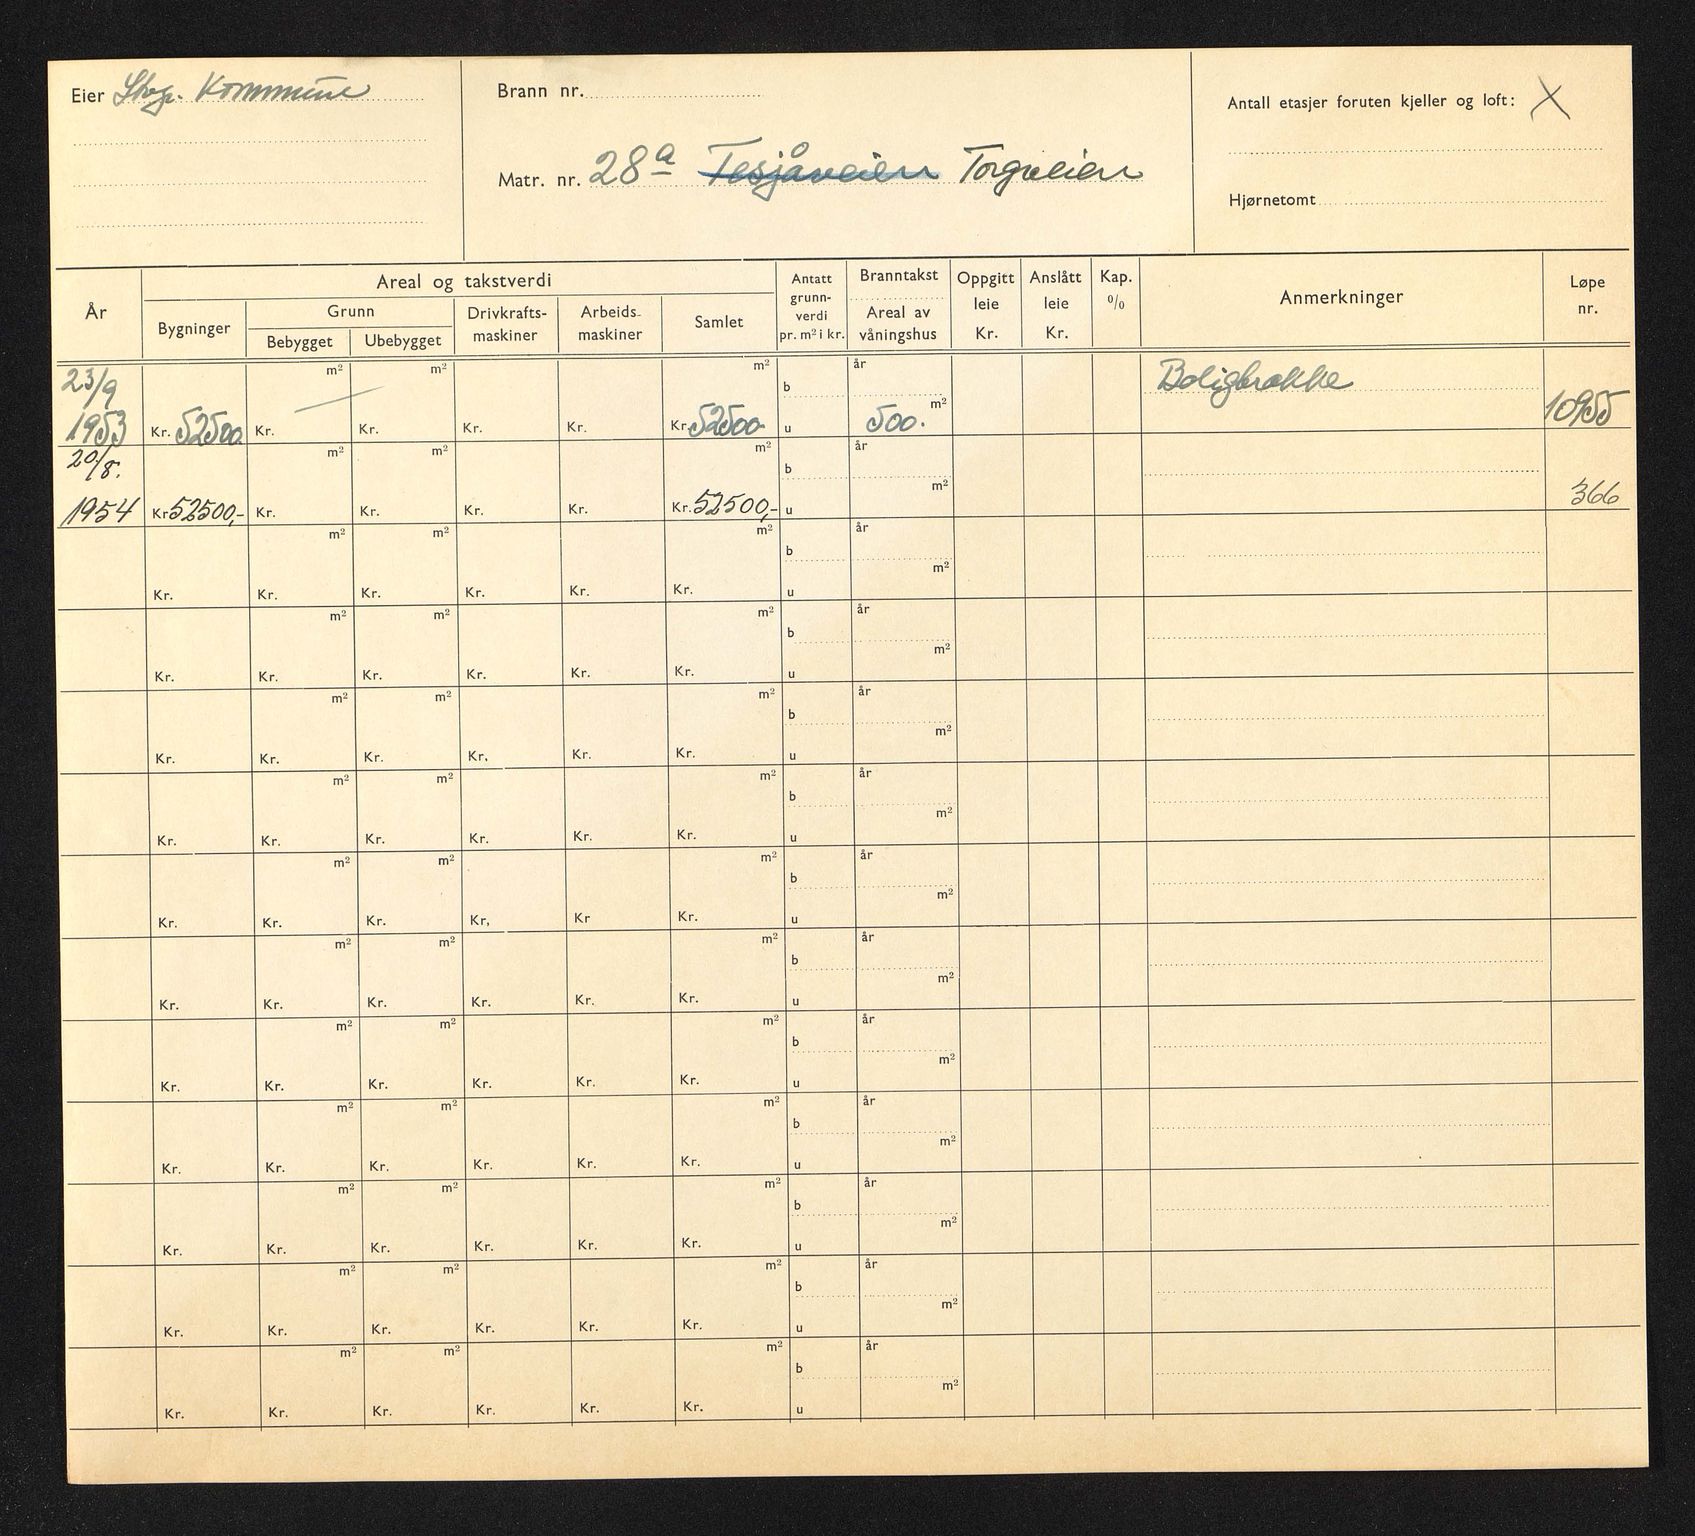 Eier Stvgr. Kommune
Brann nr.
Matr. nr. 28a Tesjåveien Torgveien
Antall etasjer foruten kjeller og loft: X
Hjørnetomt
År
Areal og takstverdi
Bygninger
Grunn
Bebygget Ubebygget
Drivkrafts-
maskiner
Arbeids-
maskiner
Samlet
Antatt
grunn-
verdi
pr. m² i kr.
Branntakst
Areal av
våningshus
Oppgitt
leie
Kr.
Anslått
leie
Kr.
Kap.
%
Anmerkninger
Løpe
nr.
23/9 m² m² m² b år Boligbrakke
1953 Kr. 52500 Kr. Kr. Kr. Kr. Kr. 52500 u 500. m² 10955
20/8. m² m² m² b år
1954 Kr 52500,- Kr. Kr. Kr. Kr. Kr. 52500,- u m² 366
m² m² m² b år
Kr. Kr. Kr. Kr. Kr. Kr. u m²
m² m² m² b år
Kr. Kr. Kr. Kr. Kr. Kr. u m²
m² m² m² b år
Kr. Kr. Kr. Kr. Kr. Kr. u m²
m² m² m² b år
Kr. Kr. Kr. Kr. Kr. Kr. u m²
m² m² m² b år
Kr. Kr. Kr. Kr, Kr Kr. u m²
m² m² m² b år
Kr. Kr. Kr. Kr. Kr. Kr. u m²
m² m² m² b år
Kr. Kr. Kr. Kr. Kr. Kr. u m²
m² m² m² b år
Kr. Kr. Kr. Kr. Kr. Kr. u m²
m² m² m² b år
Kr. Kr. Kr. Kr. Kr. Kr. u m²
m² m² m² b år
Kr. Kr. Kr. Kr. Kr. Kr. u m²
m² m² m² b år
Kr. Kr. Kr. Kr. Kr. Kr. u m²